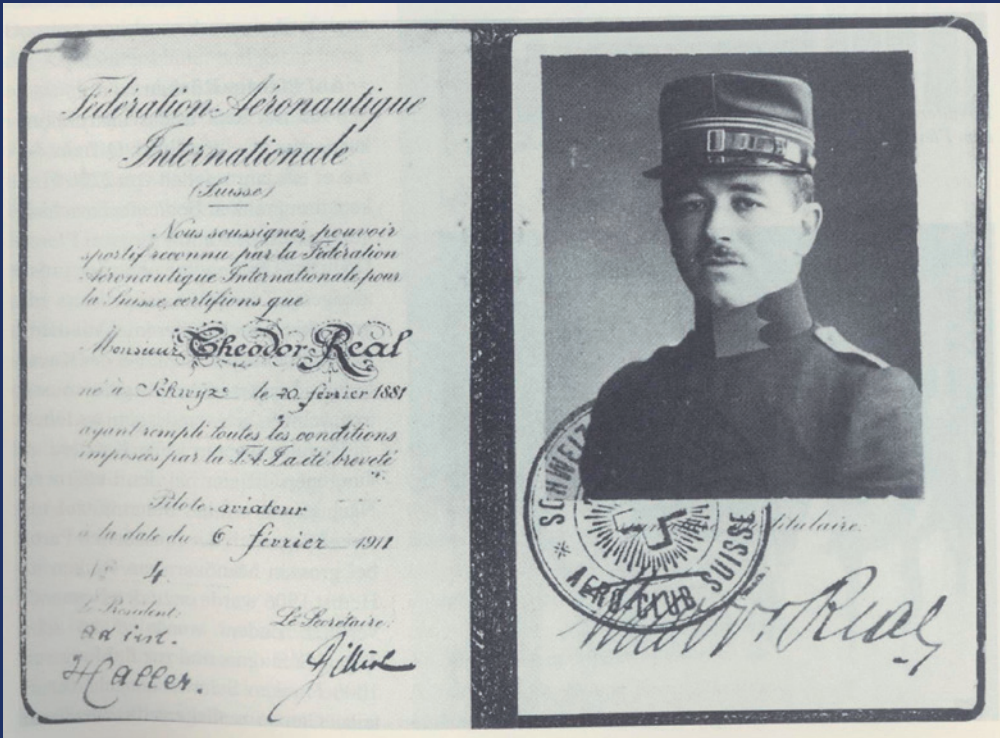 Fédération Aéronautique
Internationale
(Suisse)
Nous soussignés, pouvoir
sportif reconnu par la Fédération
Aéronautique Internationale pour
la Suisse, certifions que
Monsieur Theodor Real
né à Schwyz le 20 février 1881
ayant rempli toutes les conditions
imposées par la F.A.I a été breveté
Pilote-aviateur
à la date du 6 février 1911
4
Le Président:
ad int.
Haller.
Le Secrétaire:
titulaire.
SCHWEIZ
AERO-CLUB SUISSE
Real